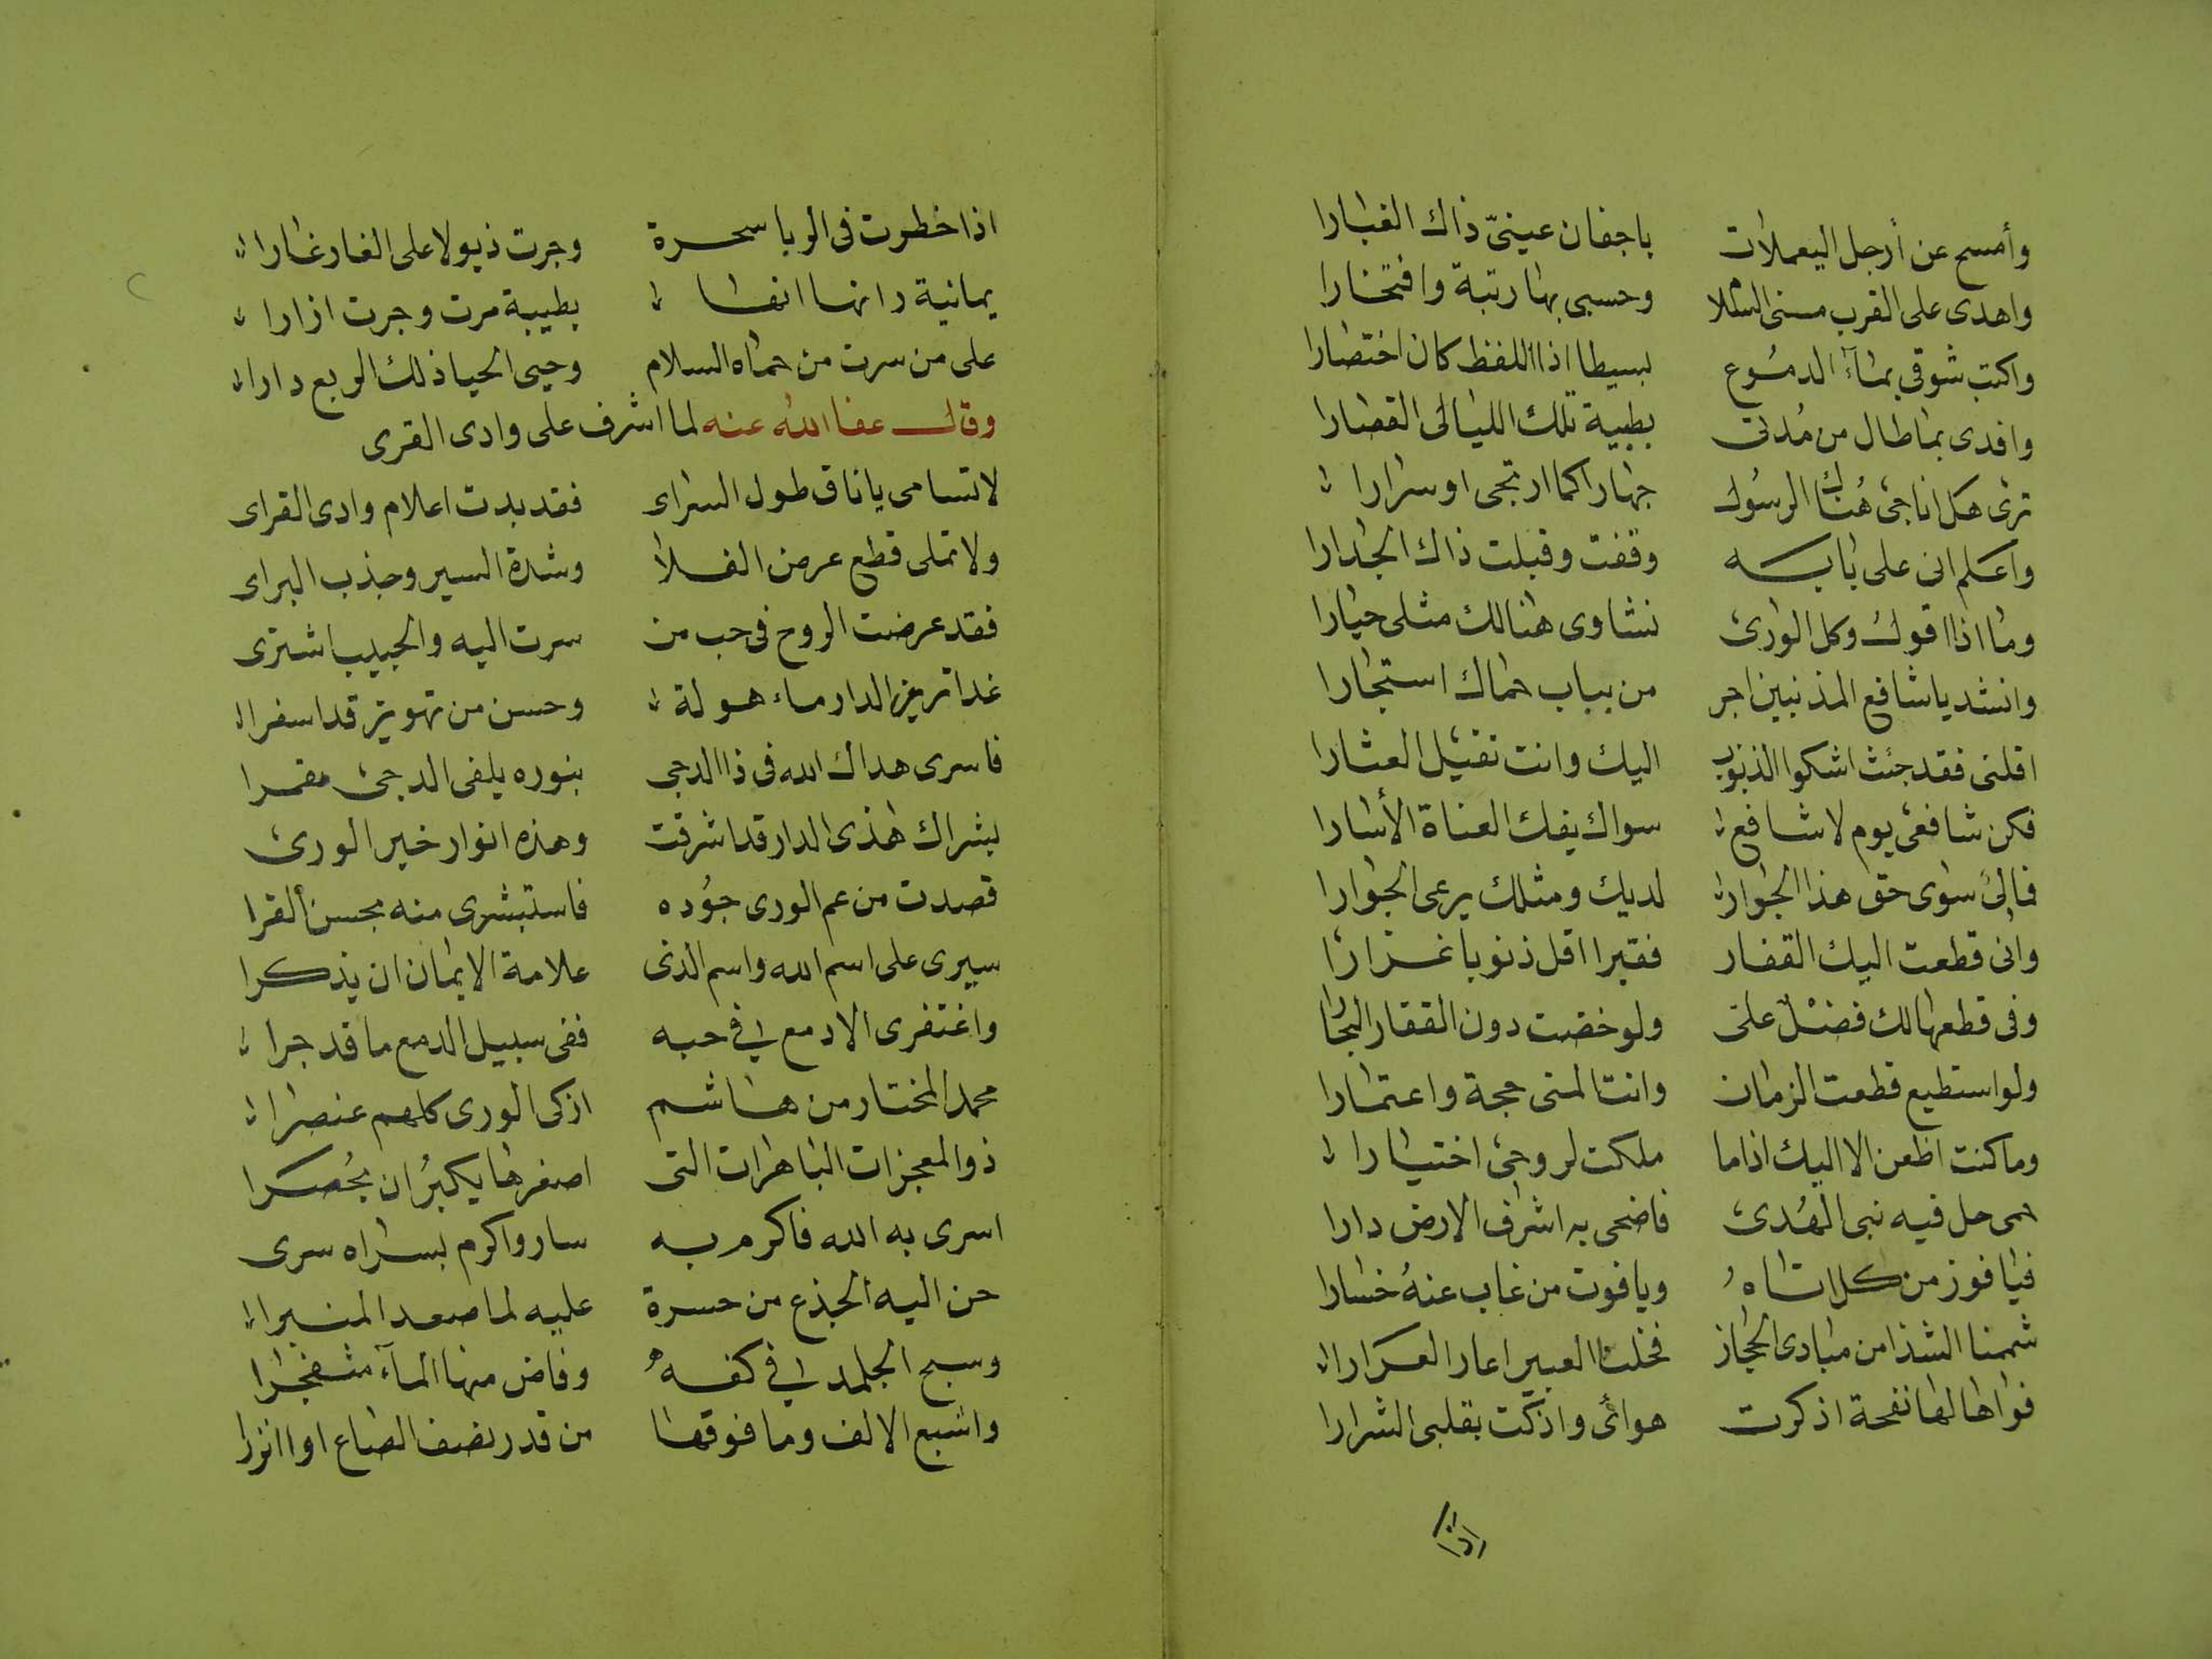 وأمسح عن أرجل اليعملات باجفان عينيّ ذاك الغبارا
واهدى على القرب منى السلا وحسبى بها رتبة وافتخارا
واكتب شوقى بمآء الدمُوع بسيطا اذا اللفظ كان اختصارا
وافدى بما طال من مُدتى بطيبة تلك الليالى القصارا
ترى هل اناجى هُناك الرسُول جهارا كما ارتجى او سرارا
واعلم انى على بابه وقفت وقبلت ذاك الجدارا
وما اذا اقول وكل الورى نشاوى هنالك مثلى حيارا
وانشد ياشافع المذنبين اجر من بباب حماك استجارا
اقلنى فقد جئت اشكوا الذنوب اليك وانت تقيل العثارا
فكن شافعى يوم لا شافع سواك يفك العناة الأسارا
فمالى سوى حق هذا الجوار لديك ومثلك يرعى الجوارا
وانى قطعت اليك القفار فقيرا اقل ذنوبا غزارا
وفى قطعها لك فضل على ولو خضت دون القفار البحارا
ولو استطيع قطعت الزمان وانت المنى حجة واعتمارا
وما كنت اظعن الا اليك اذا ما ملكت لروحى اختيارا
حمى حل فيه نبى الهُدى فاضحى به اشرف الارض دارا
فيا فوز من كل اتاهُ ويا فوت من غاب عنهُ خسارا
شممنا الشذا من مبادى الحجاز فخلنا العبير اعار العرارا
فواها لها نفحة اذكرت هوائى واذكت بقلبى الشرارا
اذا
اذا خطرت فى الربا سحرة وجرت ذيولا على الغار غارا
يمانية دانها انها بطيبة مرت وجرت ازارا
على من سرت من حماه السلام وحيى الحيا ذلك الربع دارا
وقال عفا الله عنه لما اشرف على وادى القرى
لا تسامى ياناق طول السراى فقد بدت اعلام وادى القراى
ولا تملى قطع عرض الفلا وشدة السير وجذب البراى
فقد عرضت الروح فى حب من سرت اليه والحبيب اشترى
غدا ترين الدار ماهولة وحسن من تهوين قد اسفرا
فاسرى هداك الله فى ذا الدجى بنوره يلفى الدجى مقمرا
بشراك هذى الدار قد اشرقت وهذه انوار خير الورى
قصدت من عم الورى جُوده فاستبشرى منه بحسن القرا
سيرى على اسم الله واسم الذى علامة الايمان ان يذكرا
واغتفرى الادمع لى فى حبه ففى سبيل الدمع ما قد جرا
محمد المختار من هاشم ازكى الورى كلهم عنصرا
ذو المعجزات الباهرات التى اصغرها يكبُر ان يُحصرا
اسرى به الله فاكرم به سار واكرم بسراه سرى
حن اليه الجذع من حسرة عليه لما صعد المنبرا
وسبح الجلمد فى كفهُ وفاض منها المآء مثفجرا
واشبع الالف وما فوقها من قدر نصف الصاع او انزرا